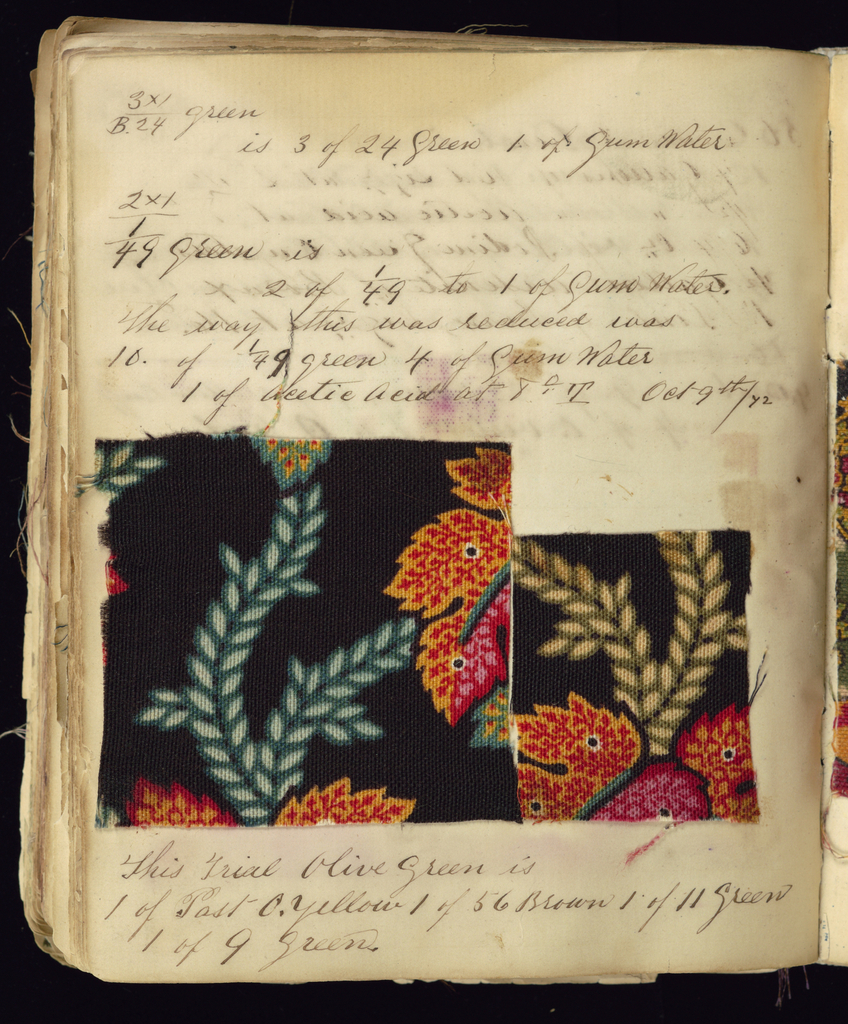 3x1
B.24 green
is 3 of 24 Green 1 of Gum Water
2x1
1
49 Green is
2 of 1/49 to 1 of Gum Water.
The way this was reduced was
10. of 1/49 green 4 of Gum Water
1 of acetic acid at 8 d T Oct 9th/72
This Trial Olive Green is
1 of Past O. Yellow 1 of 56 Brown 1 of 11 Green
1 of 9 Green.